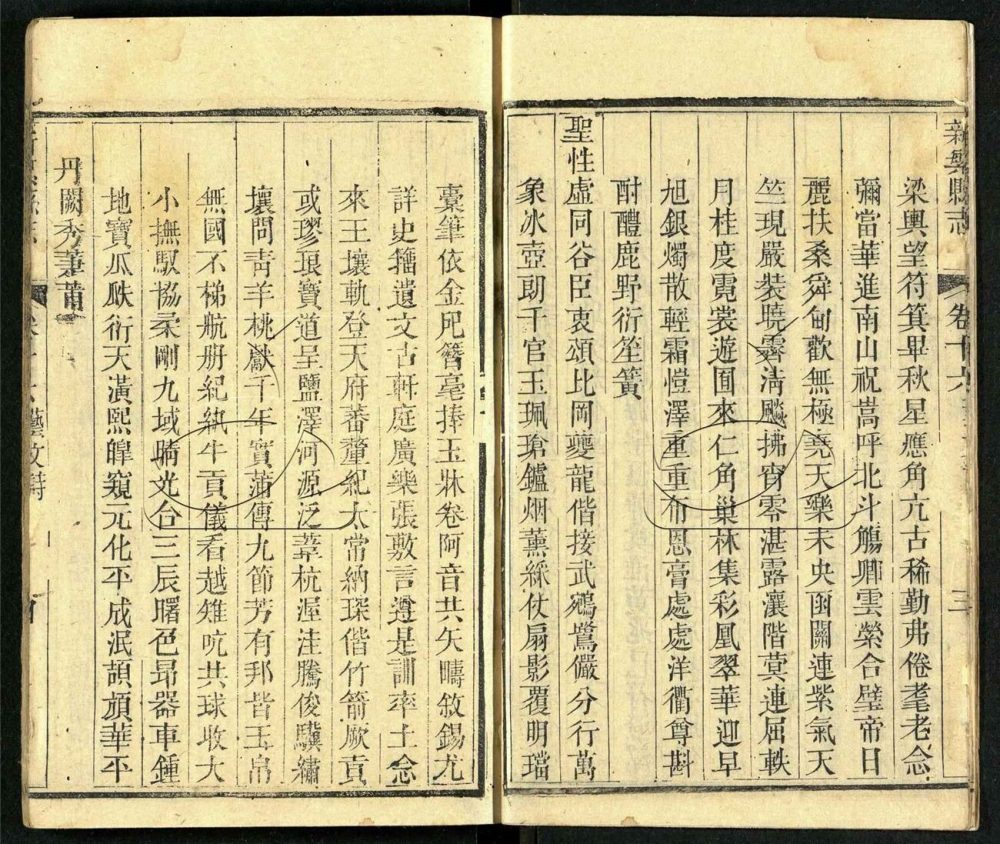 新興縣志 卷十六 三
梁輿望符箕畢秋星應角亢古稀勤弗倦耄老念
彌當華進南山祝嵩呼北斗觴卿雲縈合璧帝日
麗扶桑舜甸歡無極堯天樂未央函關連紫氣天
竺現嚴裝曉霽淸颸拂宵零湛露瀼階蓂連屈軼
月桂度霓裳遊囿來仁角巢林集彩凰翠華迎早
旭銀燭散輕霜愷澤重重布恩膏處處洋衢尊斟
酎醴鹿野衍笙簧
聖性虛同谷臣衷頌比岡夔龍偕接武鵷鷺儼分行萬
象冰壺朗千官玉珮瑲鑪烟薰綵仗扇影覆明璫
橐筆依金戺簪毫捧玉牀卷阿音共矢疇敘錫尤
詳史籀遺文古軒庭廣樂張敷言遵是訓率土念
來王壤軌登天府蕃釐紀太常納琛偕竹箭厥貢
或璆琅寶道呈鹽澤河源泛葦杭渥洼騰俊驥繡
壤問靑羊桃獻千年實蒲傳九節芳有邦皆玉帛
無國不梯航册紀紈牛貢儀看越雉吭共球收大
小撫馭協柔剛九域晴光合三辰曙色昻器車鍾
地寶瓜瓞衍天潢熙皥窺元化平成泯頡頏華平
丹闕秀萐莆
藝文詩